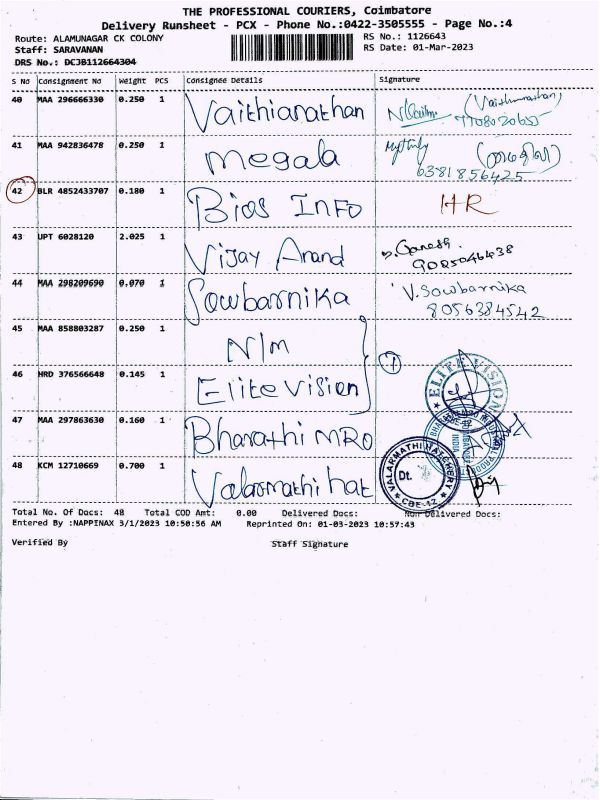 THE PROFESSIONAL COURIERS, Coimbatore
Delivery Runsheet - PCX - Phone No.:0422-3505555 - Page No.:4
Route: ALAMUNAGAR CK COLONY
RS No.: 1126643
Staff: SARAVANAN
RS Date: 01-Mar-2023
DRS No.: DCJB112664304
S No Consignment No Weight PCS Consignee Details Signature
40 MAA 296666330 0.250 1 Vaithianathan (Vaithianathan)
41 MAA 942836478 0.250 1 Megala
6381856425
42 BLR 4852433707 0.180 1 Bios INFO HR
43 UPT 6028120 2.025 1 Vijay Anand Ganesh.
44 MAA 298209690 0.070 1 Sowbarnika V.Sowbarnika
8056384542
45 MAA 858803287 0.250 1 N/m
46 HRD 376566648 0.145 1 Elite Vision ELITE VISION
47 MAA 297863630 0.160 1 Bharathi MRO
48 KCM 12710669 0.700 1 Valarmathi hat VALARMATHI HATCHERY
Dt.
CBE-12
Total No. Of Docs: 48 Total COD Amt: 0.00 Delivered Docs: Non Delivered Docs:
Entered By :NAPPINAX 3/1/2023 10:50:56 AM Reprinted On: 01-03-2023 10:57:43
Verified By Staff Signature